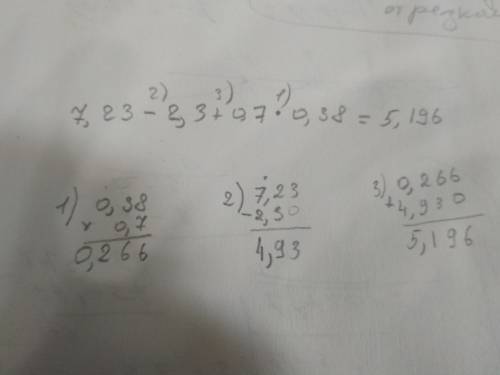 отрезка
2) 3) 1)
7,23 - 2,3 + 0,7 · 0,38 = 5,196
1) 0,38
× 0,7
0,266
2) 7,23
- 2,30
4,93
3) 0,266
+ 4,930
5,196